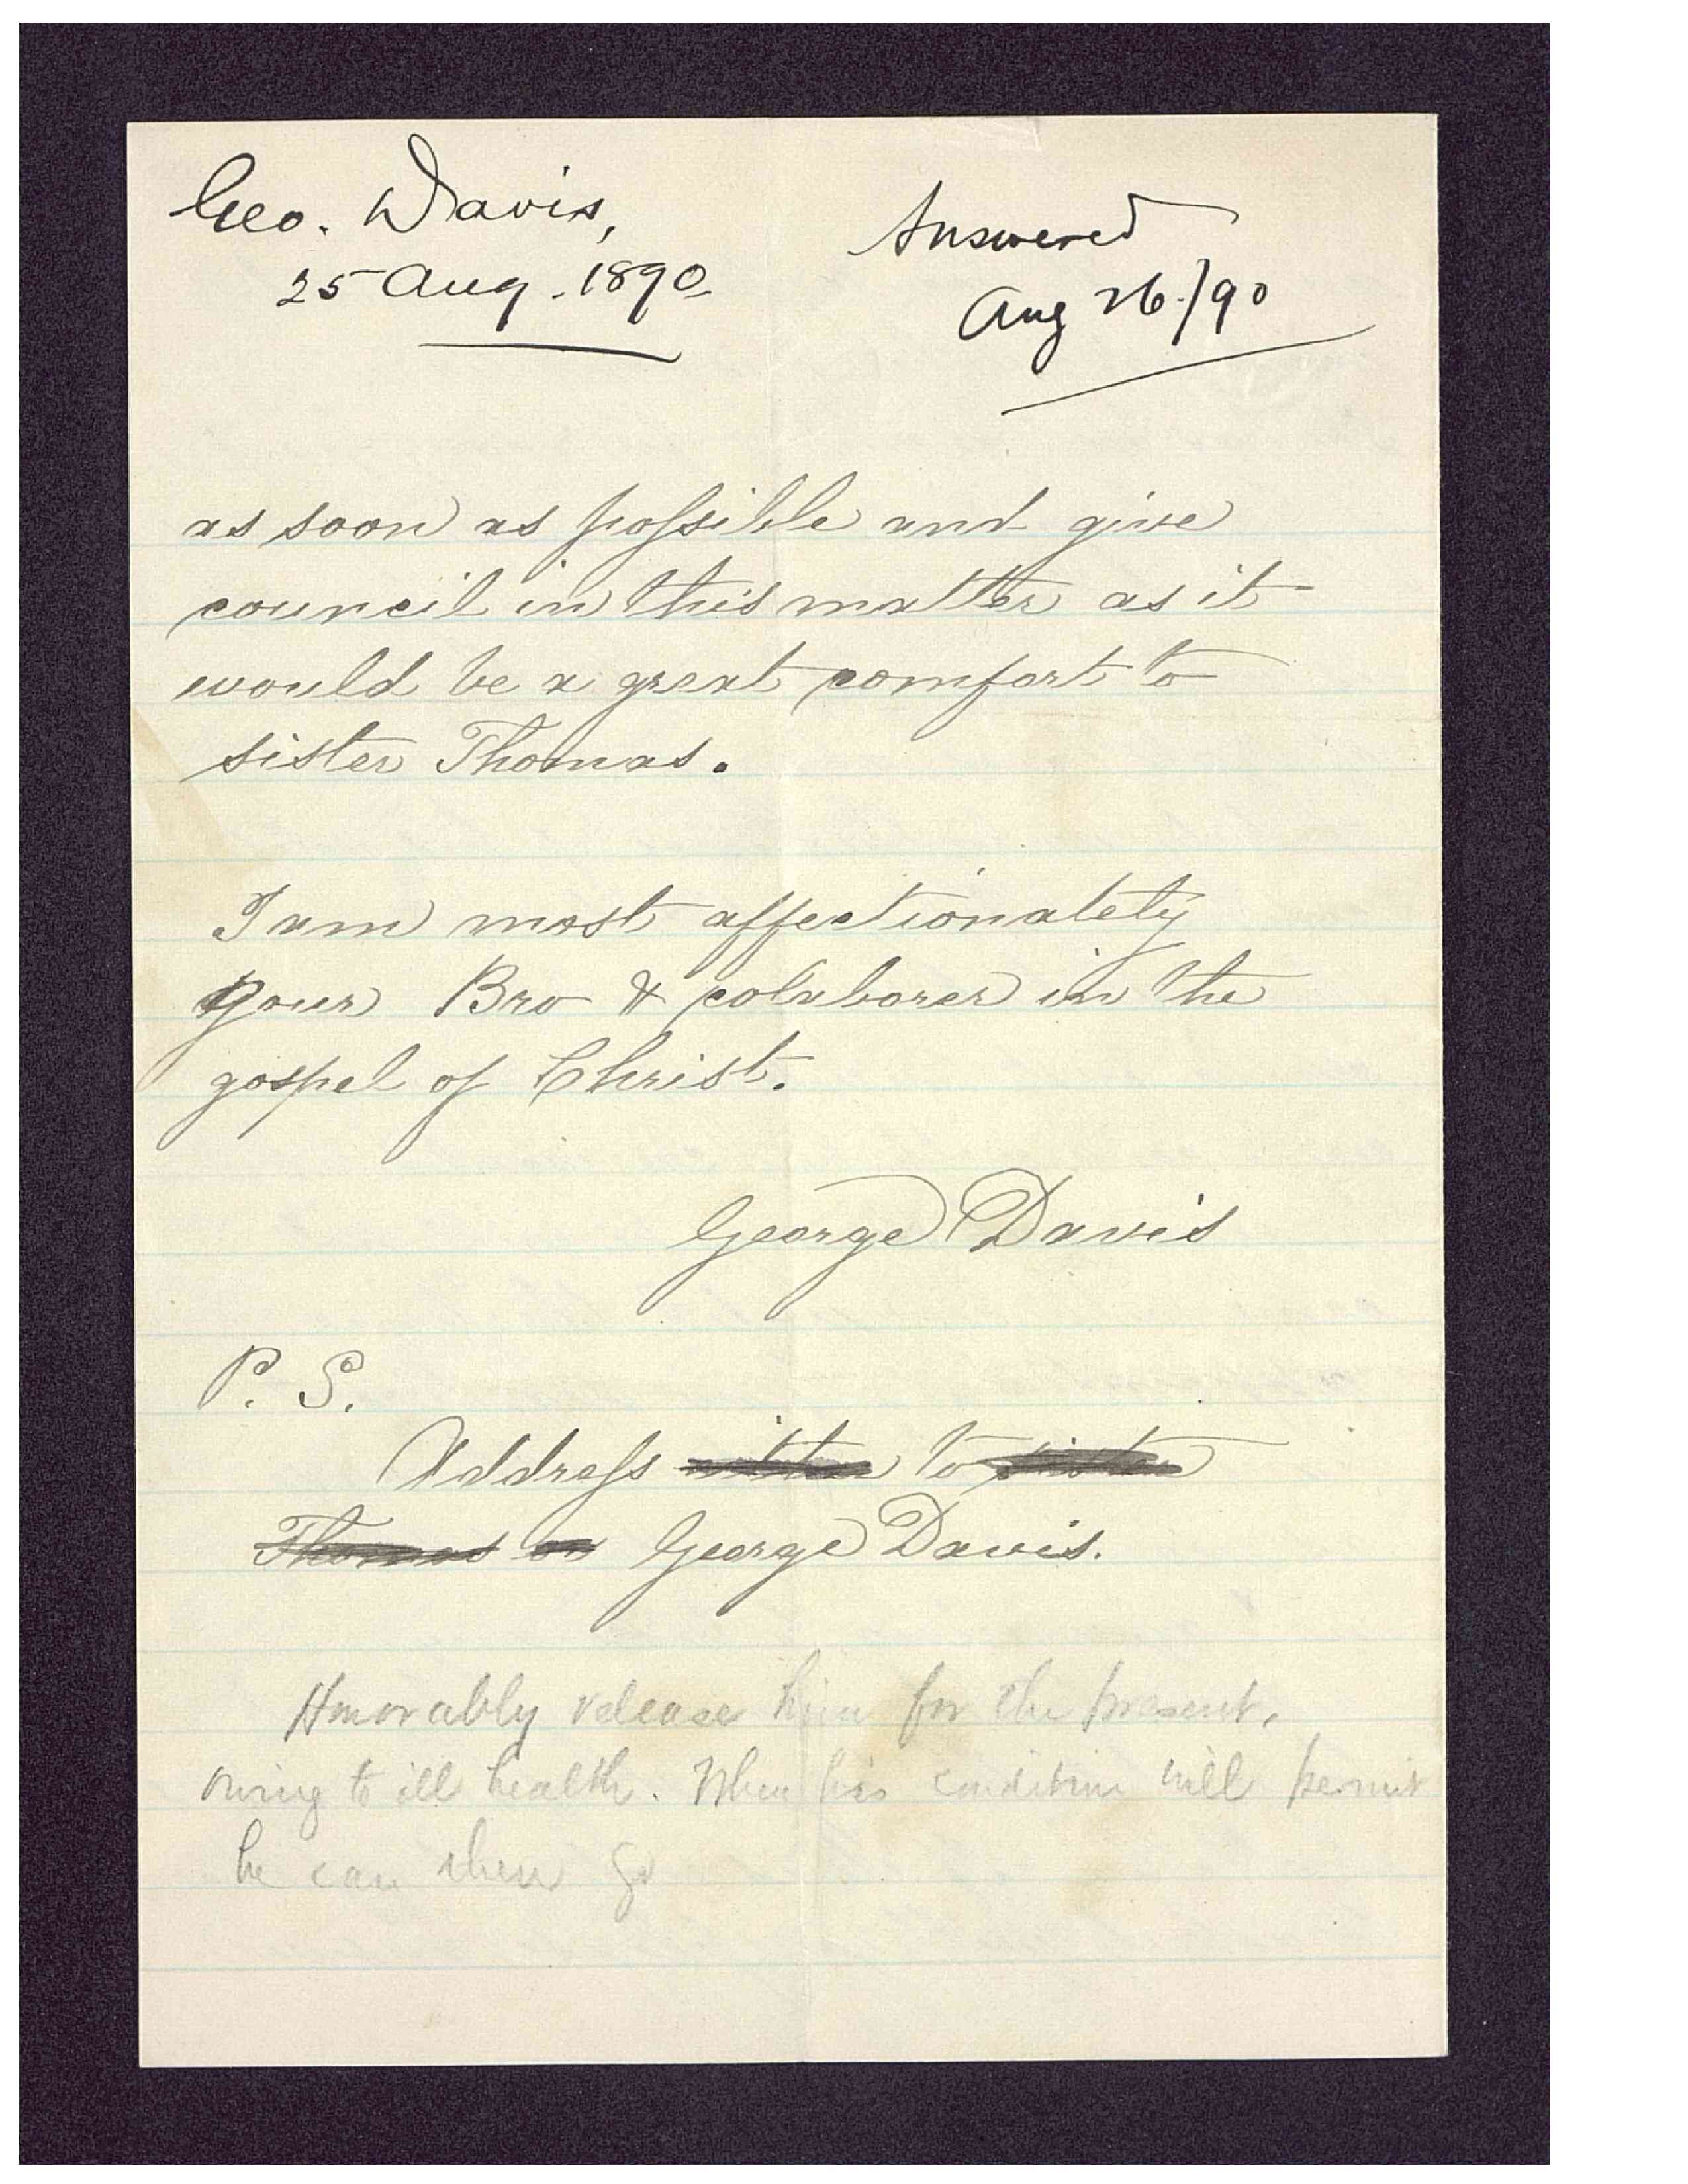 Geo. Davis,
25 Aug. 1890
Answered
Aug 26/90
as soon as possible and give
council in this matter as it
would be a great comfort to
sister Thomas.
I am most affectionately
your Bro & colaborer in the
gospel of Christ.
George Davis
P. S.
Address either to sister
Thomas or George Davis.
Honorably release him for the present,
owing to ill health. When his condition will permit
he can then go